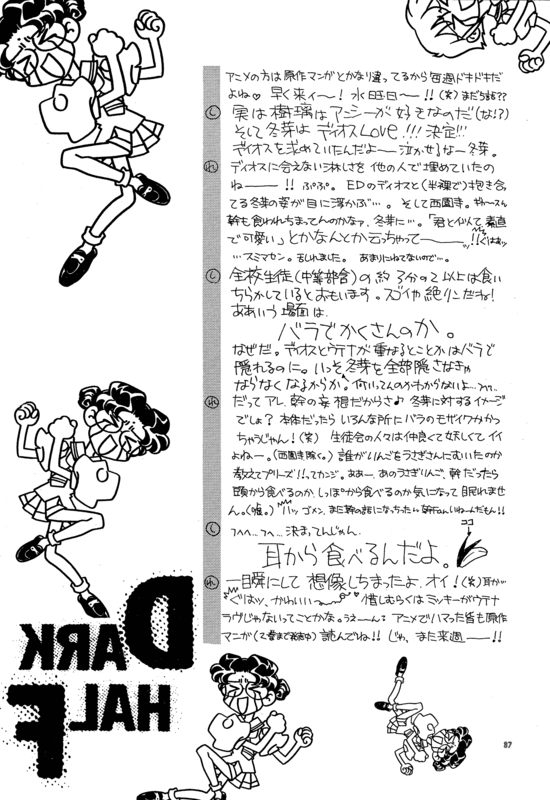 アニメの方は原作マンガとかなり違ってるから毎週ドキドキだ
よね♡ 早く来ィ～! 水曜日――!! (笑) まだ5話??
し 実は樹璃はアンシーが好きなのだ(な!?)
そして冬芽はディオスLOVE!!!! 決定!!!
ディオスを求めていたんだよ――泣かせるなー冬芽。
れ ディオスに会えない淋しさを他の人で埋めていたの
ね――!! ぷぷ。EDのディオスと(半裸で)抱き合っ
てる冬芽の姿が目に浮かぶ…。そして西園寺。
幹も食われちまってんのかなァ、冬芽に…。「君と似て素直
で可愛い」とかなんとか云っちゃって――ッ!!ぐはぁッ
…スミマセン。乱れました。あまりにねてないので…。
し 全校生徒(中等部含)の約3分の2以上は食い
ちらかしているとおもいます。スゴイや絶リンだね!
ああいう場面は、
バラでかくさんのか。
なぜだ。ディオスとウテナが重なるとことかはバラで
隠れるのに。いっそ冬芽を全部隠さなきゃ
ならなくなるからか。何いってんのかわからないよ…
れ だってアレ、幹の妄想だからさ♪ 冬芽に対するイメージ
でしょ? 本体だったらいろんな所にバラのモザイクかかっ
ちゃうじゃん!(笑) 生徒会の人々は仲良くて妖しくてイイ
よねー。(西園寺除く。) 誰がりんごをうさぎさんにむいたのか
教えてプリーズ!!ってカンジ。ああー、あのうさぎりんご、幹だったら
頭から食べるのか、しっぽから食べるのか気になって眠れませ
ん。(嘘。) ハッ ゴメン、また幹の話になっちったい 幹チャんいいねーんだもん!!
し っへへ…っへ…決まってんじゃん。
ココ
耳から食べるんだよ。
れ 一瞬にして想像しちまったよ、オイ!(笑)耳か…
ぐはッ、かわいい… 惜しむらくはミッキーがウテナ
ラヴじゃないってことかな。うえーん。アニメでハマった皆も原作
マンガ(2巻まで発売中)読んでね!! じゃ、また来週――!!
DARK
HALF
87